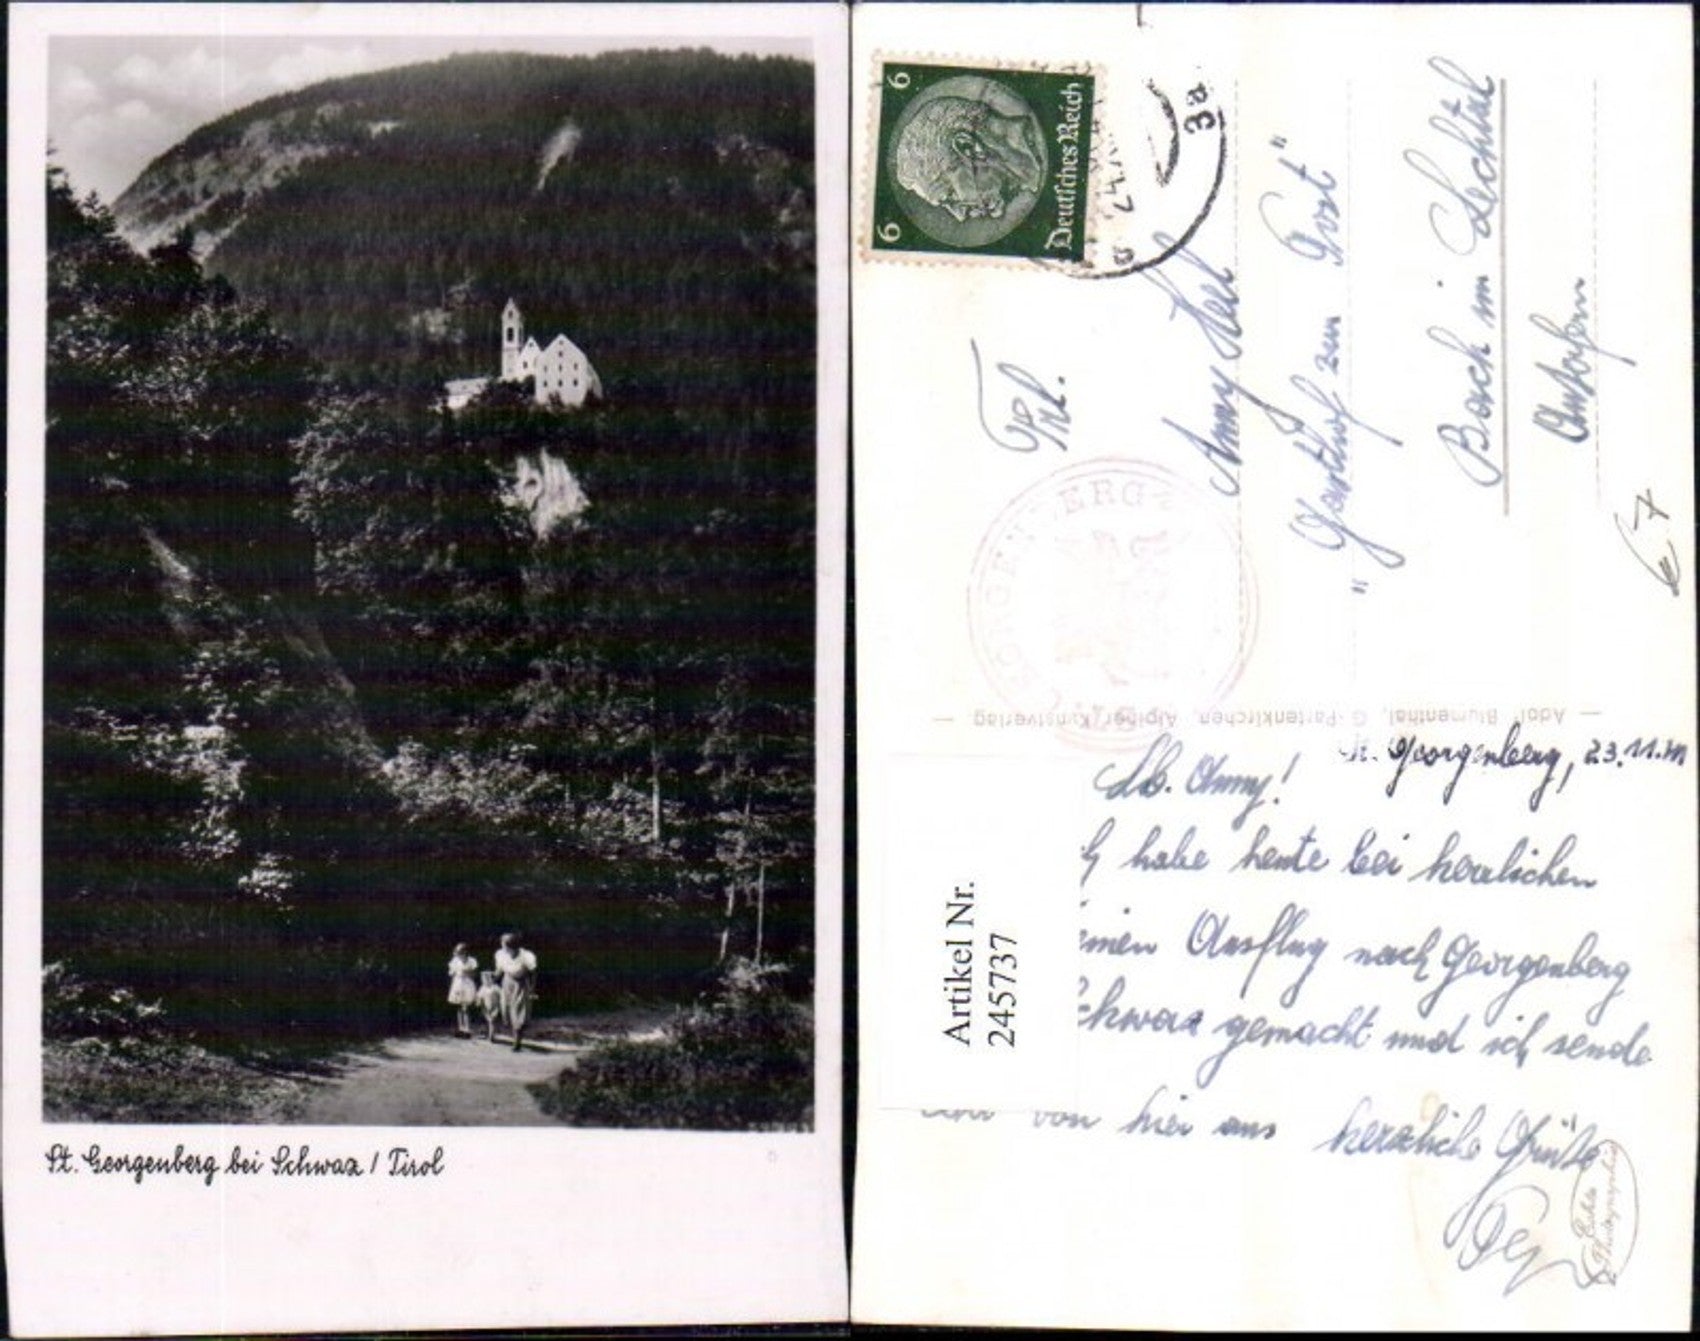 St. Georgenberg bei Schwaz / Tirol
6 Deutsches Reich 6
3a
Frl.
Anny
Gasthof zum "Post"
Bach im Lechtal
€ 7
GEORGENBERG
— Adolf Blumenthal, G.-Partenkirchen, Alpiner Kunstverlag —
Georgenberg, 23.11.
Lb. Anny!
habe heute bei herrlichen
einen Ausflug nach Georgenberg
Schwaz gemacht und ich sende
von hier aus herzliche Grüße
Echte
Photographie
Artikel Nr.
245737